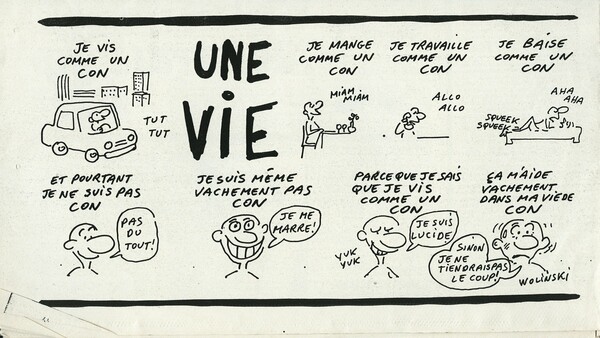 JE VIS
COMME UN
CON
TUT
TUT
UNE
VIE
JE MANGE
COMME UN
CON
MIAM
MIAM
JE TRAVAILLE
COMME UN
CON
ALLO
ALLO
JE BAISE
COMME UN
CON
AHA
AHA
SQUEEK
SQUEEK
ET POURTANT
JE NE SUIS PAS
CON
PAS
DU
TOUT!
JE SUIS MÊME
VACHEMENT PAS
CON
JE ME
MARRE!
PARCE QUE JE SAIS
QUE JE VIS
COMME UN
CON
JE SUIS
LUCIDE!
YUK
YUK
ÇA M'AIDE
VACHEMENT
DANS MA VIE DE
CON
SINON
JE NE
TIENDRAIS PAS
LE COUP!
WOLINSKI